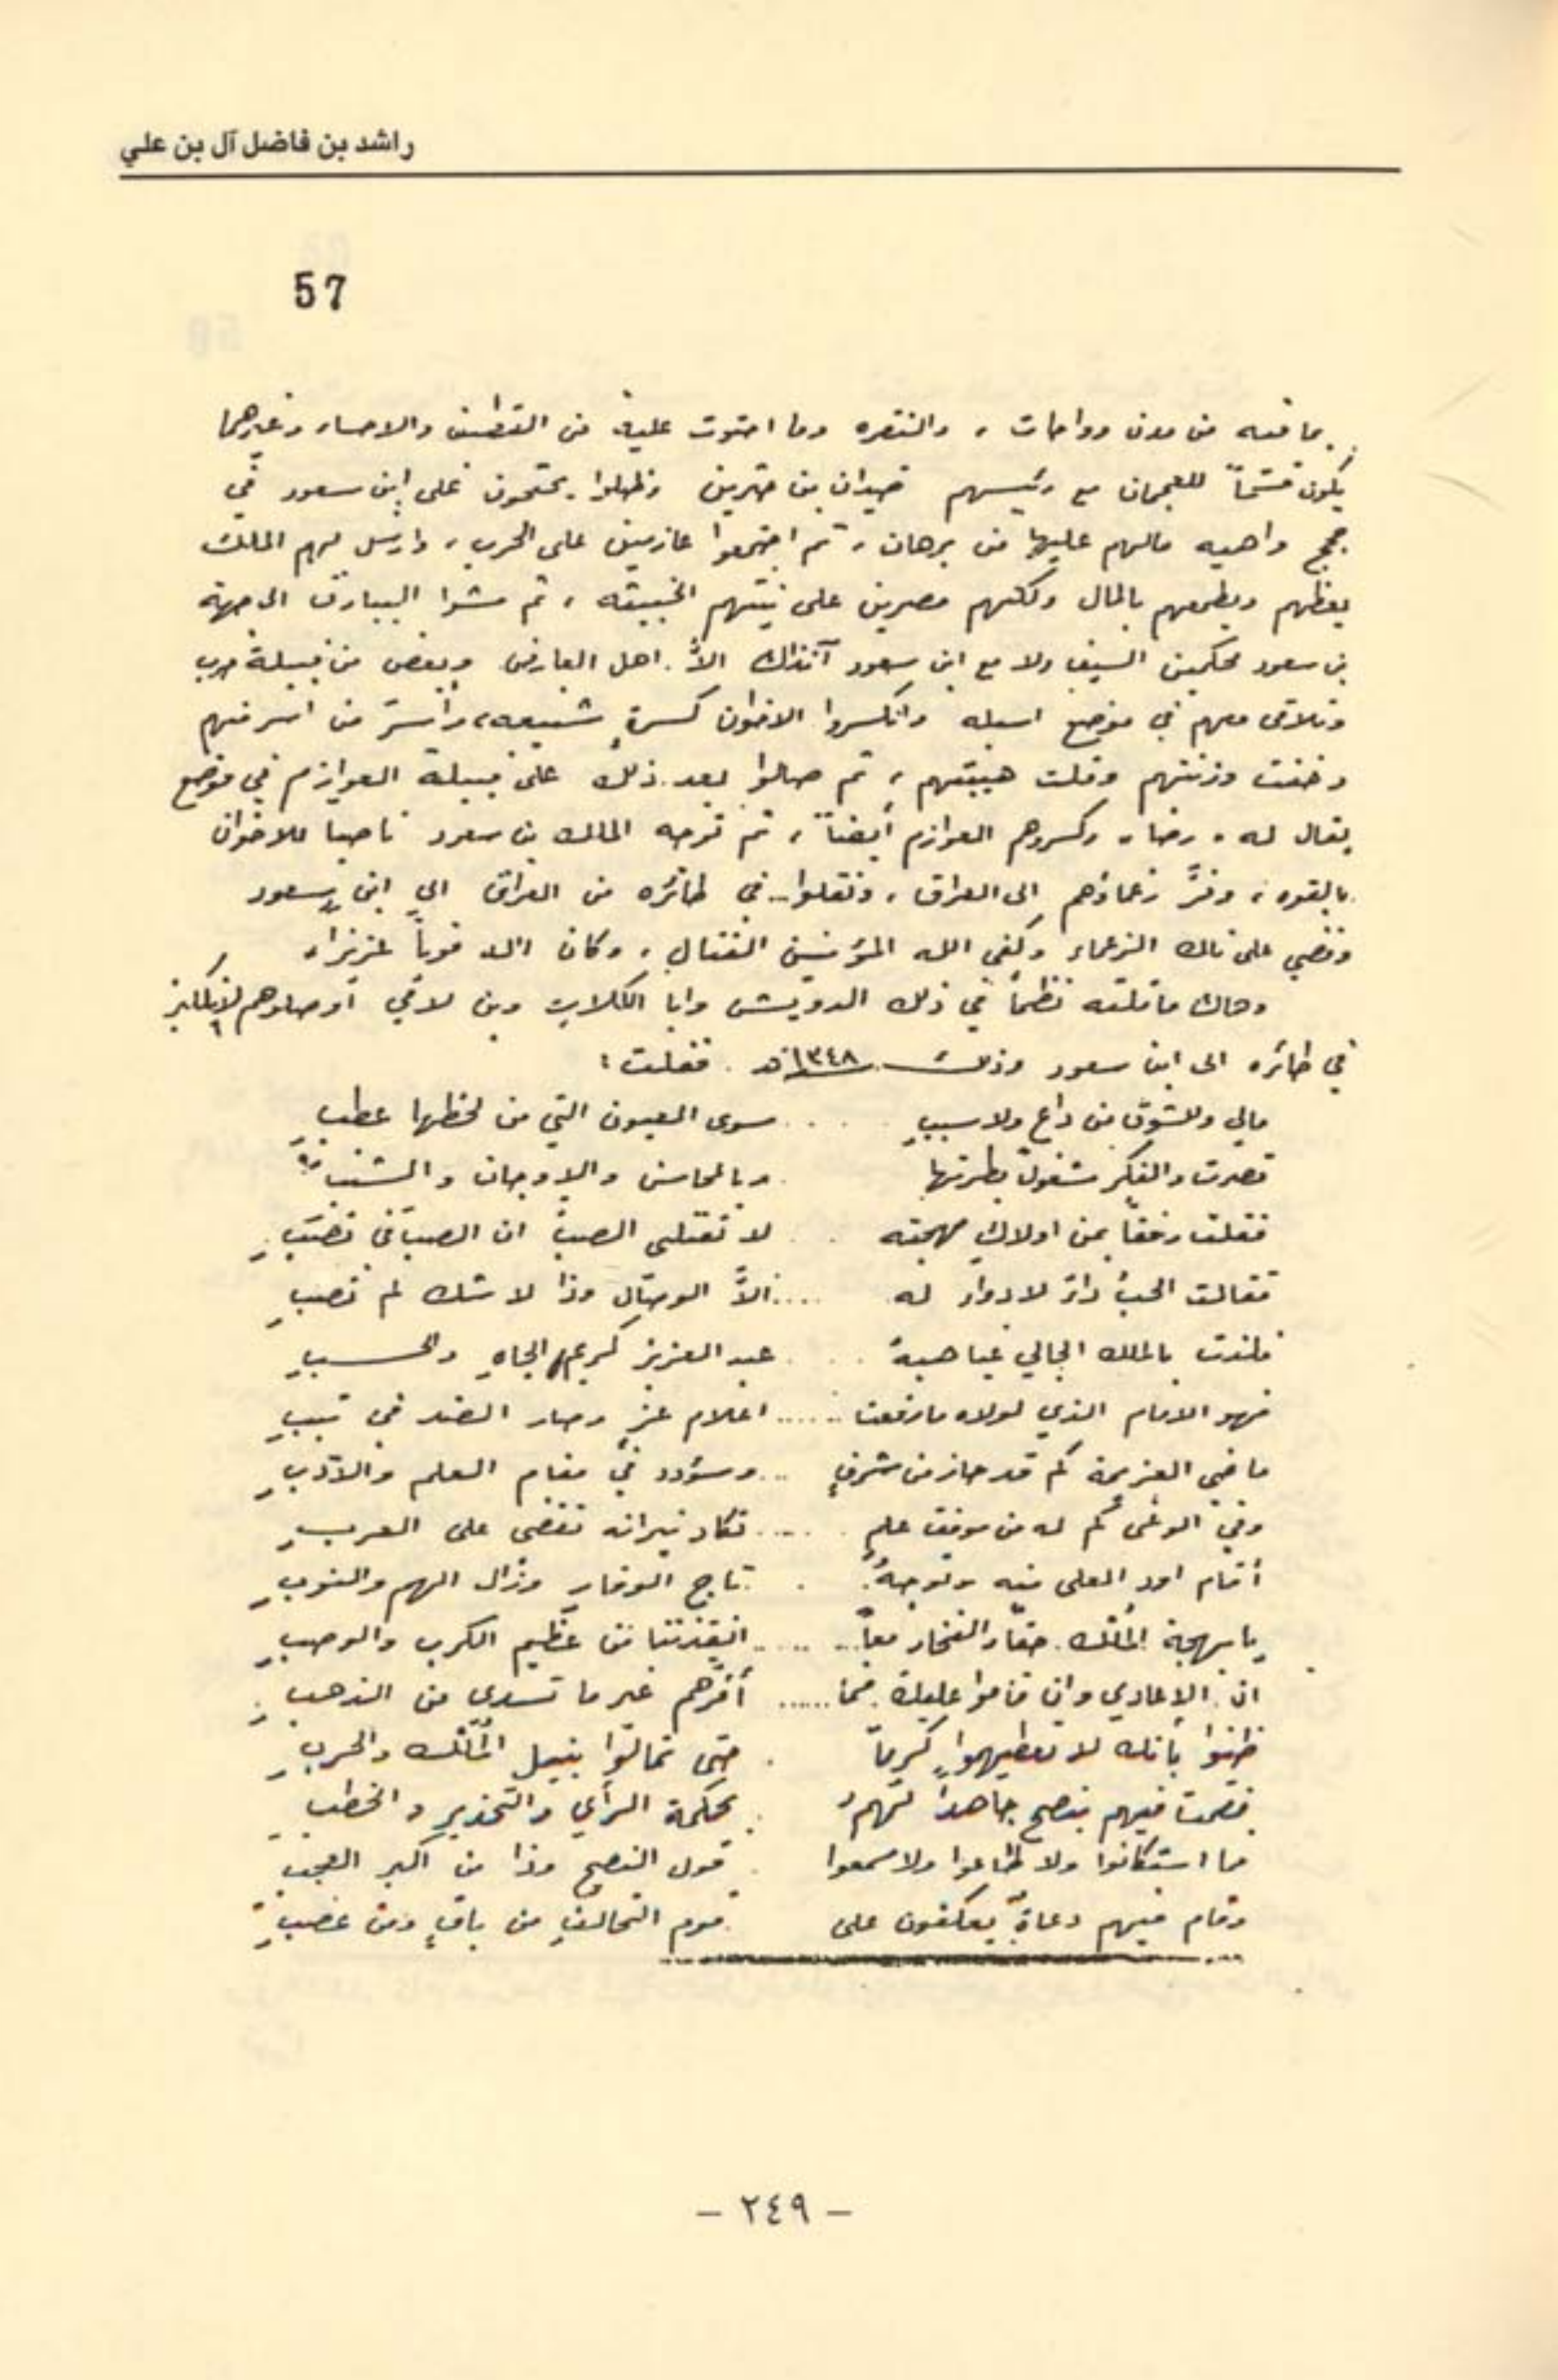 راشد بن فاضل آل بن علي
57
بما فيه من مدن وواحات ، والنقره وما احتوت عليه من القطيف والاحساء وغيرهما
يكون قسماً للعجمان مع رئيسهم ضيدان بن حثلين وظلوا يحتجون على ابن سعود في
حجج واهيه مالهم عليها من برهان ، ثم اجتمعوا عازمين على الحرب ، وارسل لهم الملك
يعظهم ويطمعهم بالمال ولكنهم مصرين على نيتهم الخبيثه ، ثم مشوا البيارق الى جهة
بن سعود محكمين السيف ولا مع ابن سعود آنذاك الاَّ اهل العارض وبعض من قبيلة حرب
وتلاقى معهم في موضع اسبله وانكسروا الاخوان كسرةٍ شنيعه، وأسرَ من اسر منهم
وخفت وزنتهم وقلت هيبتهم ، ثم صالوا بعد ذلك على قبيلة العوازم في موضع
يقال له ، رضا ، وكسروهم العوازم أيضاً ، ثم توجه الملك بن سعود ناصيا للاخوان
بالقوه ، وفرَّ زعماؤهم الى العراق ، ونقلوا في طائره من العراق الى ابن سعود
وقضي على تلك الزعماء وكفى الله المؤمنين القتال ، وكان الله قوياً عزيزا،
وهاك ما قلته نظماً في ذلك الدويش وابا الكلاب وبن لامي أوصلوهم الانكليز
في طائره الى ابن سعود وذلك ١٣٤٨هـ . فقلت :
مالي وللشوق من داعٍ ولا سببِ .... سوى العيون التي من لحظها عطبِ
قصرت والفكر مشغولٌ بطرتها .. وبالمحاسن والاوجان والشنبِ
فقلت رفقاً بمن اولاكِ مهجته .. لا تقتلي الصبَّ ان الصب في نصَبِ
فقالت الحبُّ داءٌ لا دواء له .... الاَّ الوصال وذا لا شك لم تصبِ
فلذت بالملك الجالي غياهبهُ .... عبد العزيز كريم الجاهِ والحسبِ
فهو الامام الذي لولاه ما رفعت ...... اعلام عزٍ وصار الضد في تببِ
ماضي العزيمة كم قد حاز من شرفٍ ... وسؤدد في مقام العلم والأدبِ
وفي الوغى كم له من موقف علمٍ ..... تكاد نيرانه تقضى على العربِ
أقام اود العلى فيه وتوجهُ . تاج الوقار وزال الهم والنوبِ
يا بهجة الملك حقاً والفخار معاً ...... انقذتنا من عظيم الكرب والوصبِ
ان الاعادي وان قاموا عليك فما ...... أغرَّهم غير ما تسدي من الذهبِ
ظنوا بأنك لا تعطيهموا كرماً . حتى تمالوا بنيل الملك والحربِ
فقمت فيهم بنصح جاهداً لهم . بحكمة الرأي والتحذير والخطبِ
فما استكانوا ولا طاعوا ولا سمعوا . قول النصح وذا من اكبر العجبِ
وقام فيهم دعاةٌ يعكفون على . قوم التحالف من باقٍ ومن غضبِ
– ٢٤٩ –